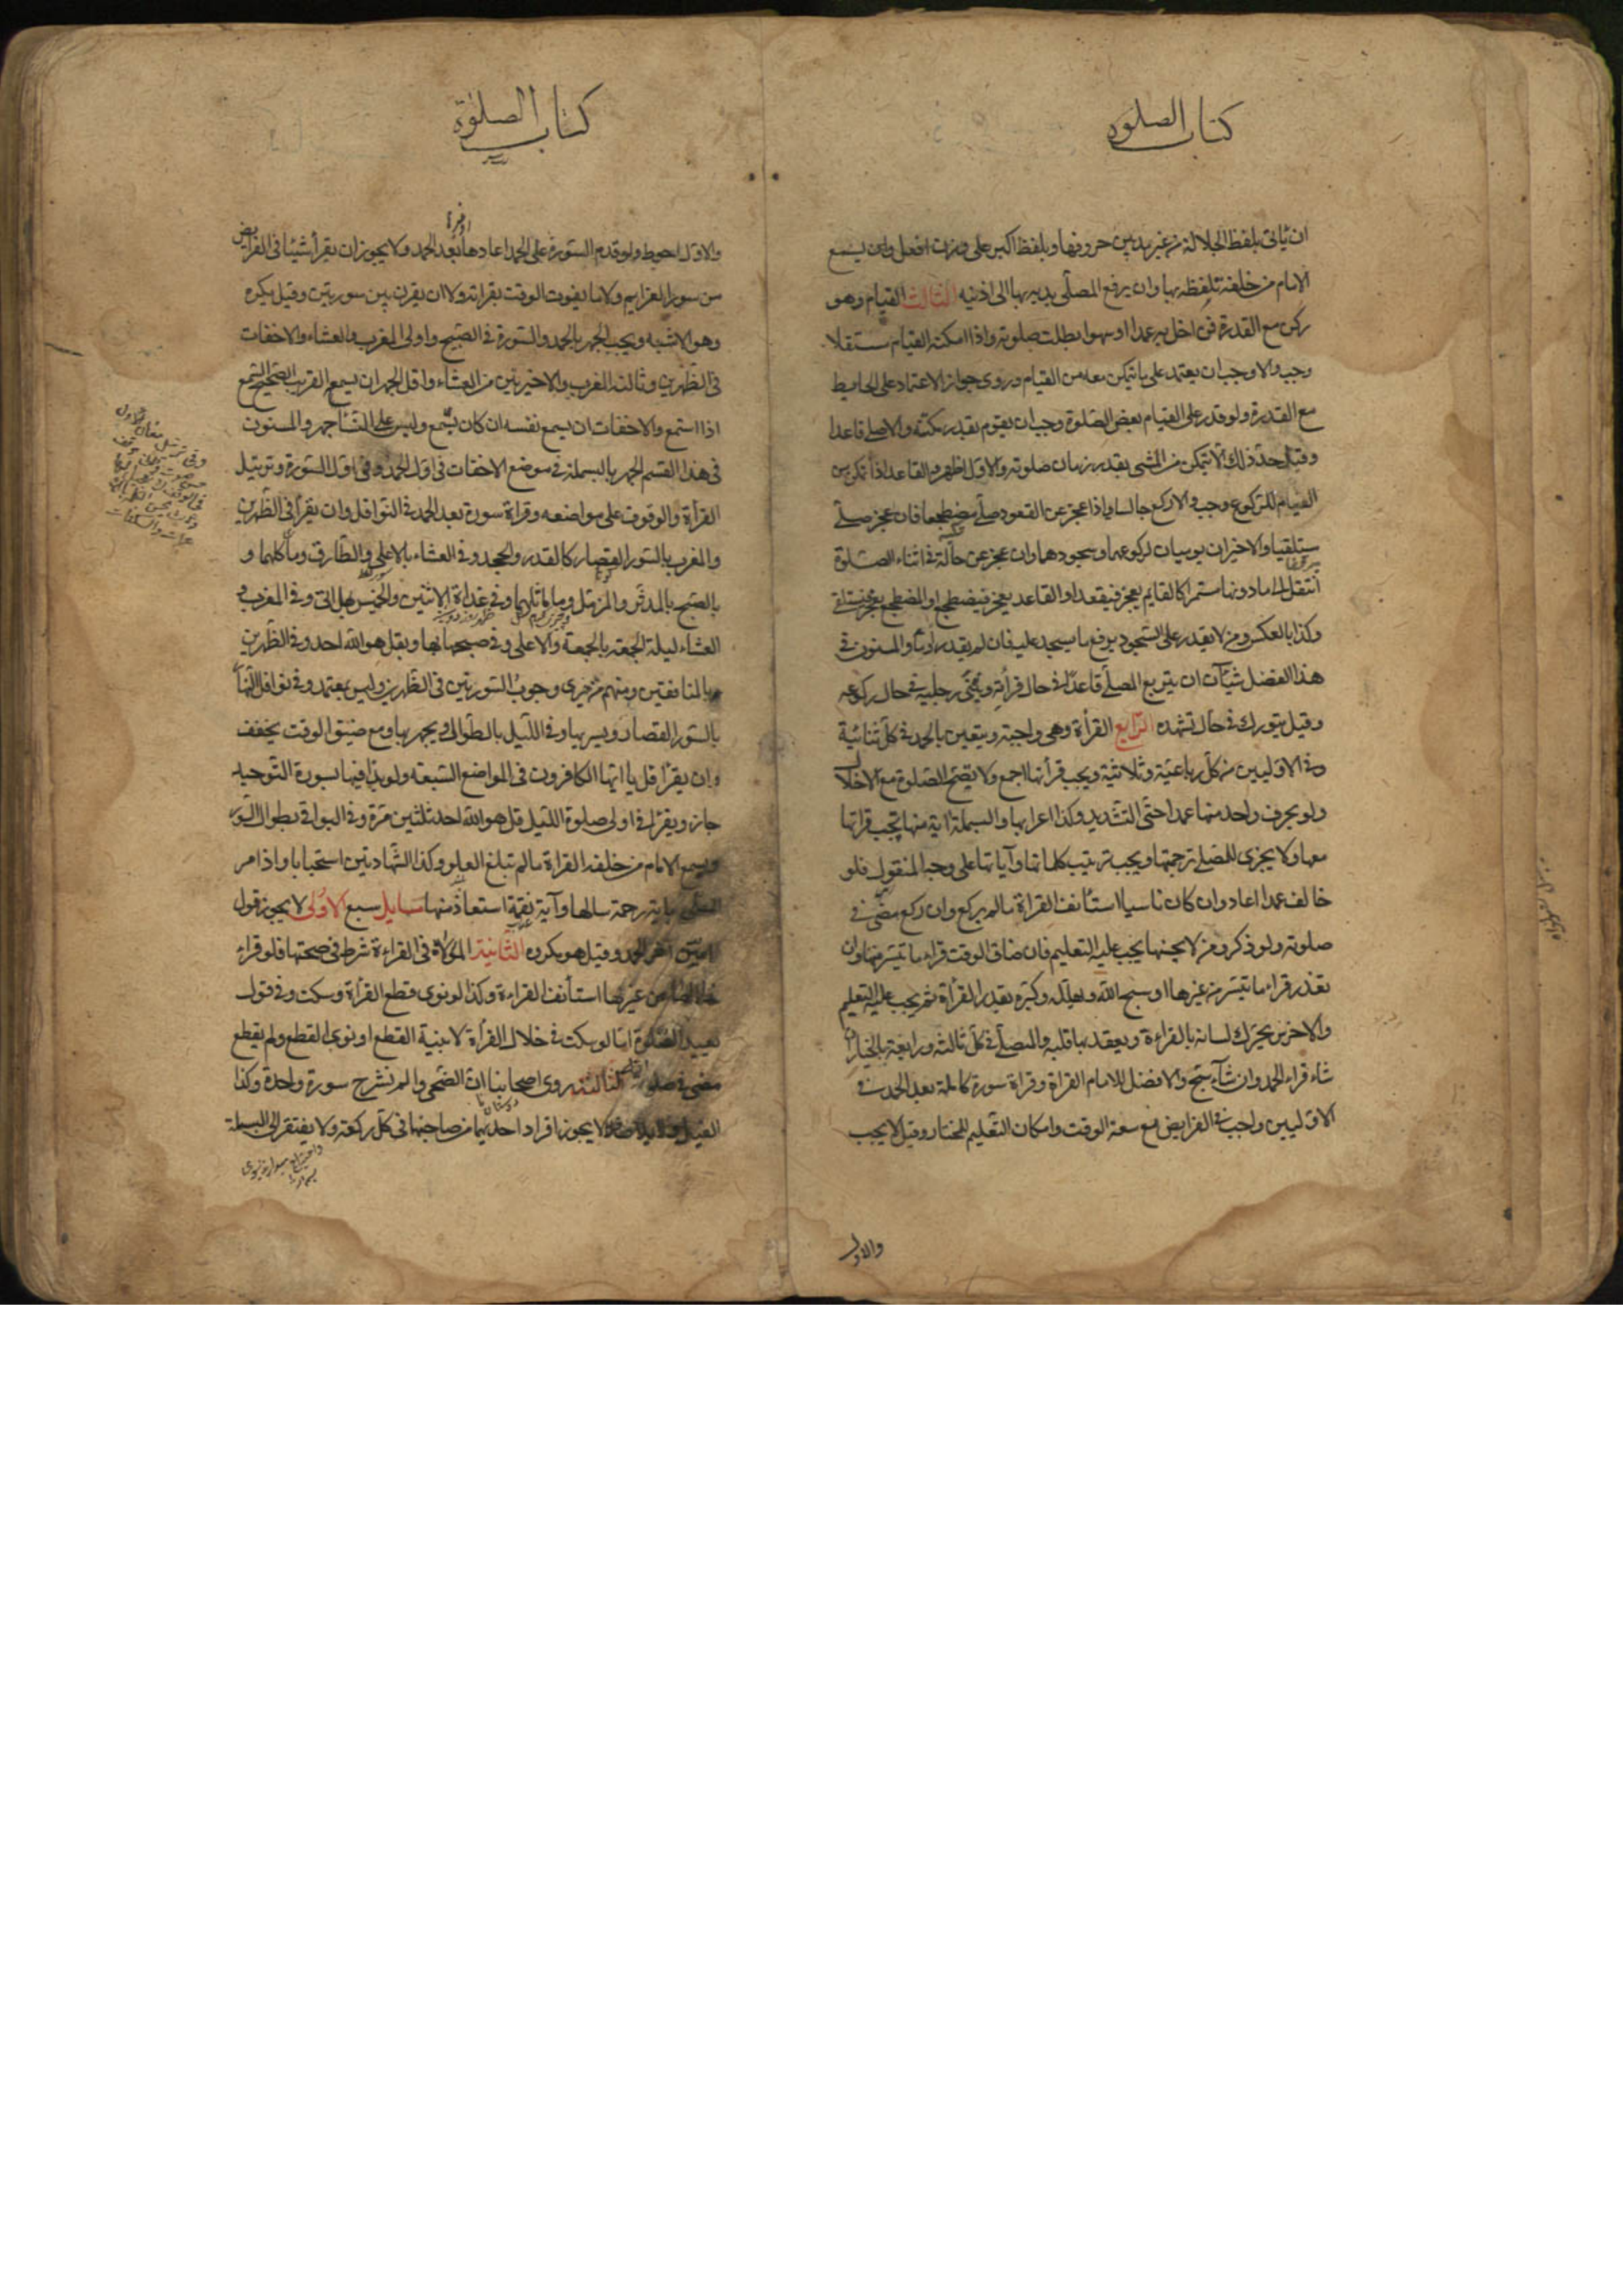 كتاب الصلوة
ان يأتى بلفظ الجلالة من غير مد بين حروفها وبلفظ اكبر على وزن افعل وان يسمع
الامام من خلفه تلفظه بها وان يرفع المصلى يديه بها الى اذنيه الثالث القيام وهو
ركن مع القدرة فمن اخل به عمدا او سهوا بطلت صلوته واذا امكنه القيام مستقلا
وجب والا وجب ان يعتمد على ما يتمكن معه من القيام وروى جواز الاعتماد على الحايط
مع القدرة ولو قدر على القيام بعض الصلوة وجب ان يقوم بقدر مكنته والا صلى قاعدا
وقيل حد ذلك الا يتمكن من المشى بقدر زمان صلوته والاول اظهر والقاعد اذا تمكن من
القيام للركوع وجب والا ركع جالسا واذا عجز عن القعود صلى مضطجعا فان عجز صلى
مستلقيا والاخيران يوميان لركوعهما وسجودهما وان عجز عن حالة فى اثناء الصلوة
انتقل الى ما دونها مستمرا كالقايم يعجز فيقعد او القاعد يعجز فيضطجع او المضطجع يعجز فيستلقى
وكذا بالعكس ومن لا يقدر على السجود يرفع ما يسجد عليه فان لم يقدر اومأ والمسنون فى
هذا الفصل شيآن ان يتربع المصلى قاعدا فى حال قرأته ويثنى رجليه فى حال ركوعه
وقيل يتورك فى حال تشهده الرابع القرأة وهى واجبة ويتعين بالحمد فى كل ثنائية
وفى الاوليين من كل رباعية وثلاثية ويجب قرأتها اجمع ولا يصح الصلوة مع الاخلال
ولو بحرف واحد منها عمدا حتى التشديد وكذا اعرابها والبسملة اية منها تجب قراتها
معها ولا يجزى للمصلى ترجمتها ويجب ترتيب كلماتها وآياتها على وجه المنقول فلو
خالف عمدا اعاد وان كان ناسيا استأنف القراة ما لم يركع وان ركع مضى فى
صلوته ولو ذكر ومن لا يحسنها يجب عليه التعليم فان ضاق الوقت قراء ما تيسر منها وان
تعذر قراء ما تيسر من غيرها او سبح الله وهلله وكبره بقدر القرأة ثم يجب عليه التعليم
والاخرس يحرك لسانه بالقراءة ويعقد بها قلبه والمصلى فى كل ثالثه ورابعة بالخيار ان
شاء قراء الحمد وان شآء سبح والافضل للامام القراة وقراة سورة كاملة بعد الحمد فى
الاوليين واجب فى الفرايض مع سعة الوقت وامكان التعليم للمختار وقيل لا يجب
والاول
كتاب الصلوة
والاول احوط ولو قدم السورة على الحمد اعادها بعد الحمد ولا يجوز ان يقرأ شيئا فى الفرايض
من سور العزايم ولا ما يفوت الوقت بقراته ولا ان يقرن بين سورتين وقيل يكره
وهو الاشبه ويجب الجهر بالحمد والسورة فى الصبح واولى المغرب والعشاء والاخفات
فى الظهرين وثالثه المغرب والاخيرتين من العشاء واقل الجهر ان يسمع القريب الصحيح السمع
اذا استمع والاخفات ان يسمع نفسه ان كان يسمع وليس على النسآء جهر والمسنون
فى هذا القسم الجهر بالبسملة فى موضع الاخفات فى اول الحمد وفى اول السورة وترتيل
القرأة والوقوف على مواضعه وقراة سورة بعد الحمد فى النوافل وان يقرأ فى الظهرين
والمغرب بالسور القصار كالقدر والجحد وفى العشاء بالاعلى والطارق وما شاكلهما و
بالصبح بالمدثر والمزمل وما ماثلهما وفى غداة الاثنين والخميس بهل اتى وفى المغرب و
العشاء ليلة الجمعة بالجمعة والاعلى وفى صبحها بها وبقل هو الله احد وفى الظهرين
بها وبالمنافقين ومنهم من يرى وجوب السورتين فى الظهرين وليس بمعتمد وفى نوافل النهار
بالسور القصار ويسر بها وفى الليل بالطوال ويجهر بها ومع ضيق الوقت يخفف
وان يقرأ قل يا ايها الكافرون فى المواضع السبعة ولو بدأ فيها بسورة التوحيد
جاز ويقرأ فى اولى صلوة الليل قل هو الله احد ثلثين مرة وفى البواقى بطوال السور
ويسمع الامام من خلفه القراة ما لم تبلغ العلو وكذا الشهادتين استحبابا واذا مر
المصلى باية رحمة سالها وآية نقمة استعاذ منها مسايل سبع الاولى لا يجوز قول
آمين آخر الحمد وقيل هو مكروه الثانية الموالاة فى القراءة شرط فى صحتها فلو قراء
خلالها من غيرها استأنف القراءة وكذا لو نوى قطع القرأة وسكت وفى قول
يعيد الصلوة اما لو سكت فى خلال القرأة لا بنية القطع او نوى القطع ولم يقطع
مضى فى صلوته الثالثة روى اصحابنا ان الضحى والم نشرح سورة واحدة وكذا
الفيل ولايلاف فلا يجوز افراد احديهما من صاحبتها فى كل ركعة ولا يفتقر الى البسملة